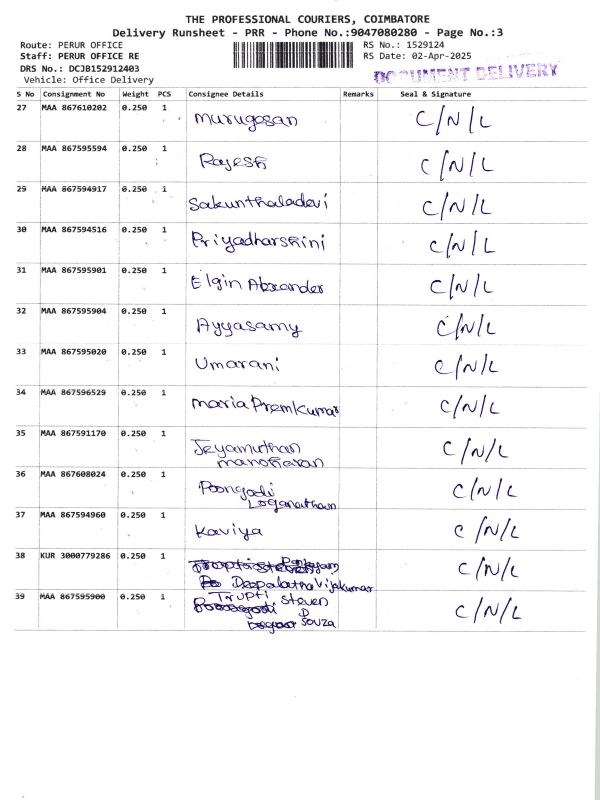 THE PROFESSIONAL COURIERS, COIMBATORE
Delivery Runsheet - PRR - Phone No.:9047080280 - Page No.:3
Route: PERUR OFFICE RS No.: 1529124
Staff: PERUR OFFICE RE RS Date: 02-Apr-2025
DRS No.: DCJB152912403
Vehicle: Office Delivery
DOCUMENT DELIVERY
S No Consignment No Weight PCS Consignee Details Remarks Seal & Signature
27 MAA 867610202 0.250 1 Murugesan C/N/L
28 MAA 867595594 0.250 1 Rajesh C/N/L
29 MAA 867594917 0.250 1 Sakunthaladevi C/N/L
30 MAA 867594516 0.250 1 Priyadharshini C/N/L
31 MAA 867595901 0.250 1 Elgin C/N/L
32 MAA 867595904 0.250 1 Ayyasamy C/N/L
33 MAA 867595020 0.250 1 Umarani C/N/L
34 MAA 867596529 0.250 1 Maria Premkumar C/N/L
35 MAA 867591170 0.250 1 Jeyamuthan C/N/L
manoharan
36 MAA 867608024 0.250 1 Poongodi C/N/L
Loganathan
37 MAA 867594960 0.250 1 Kaviya C/N/L
38 KUR 3000779286 0.250 1 C/N/L
Deepalatha Vijakumar
39 MAA 867595900 0.250 1 Trupti Steven C/N/L
D
Souza